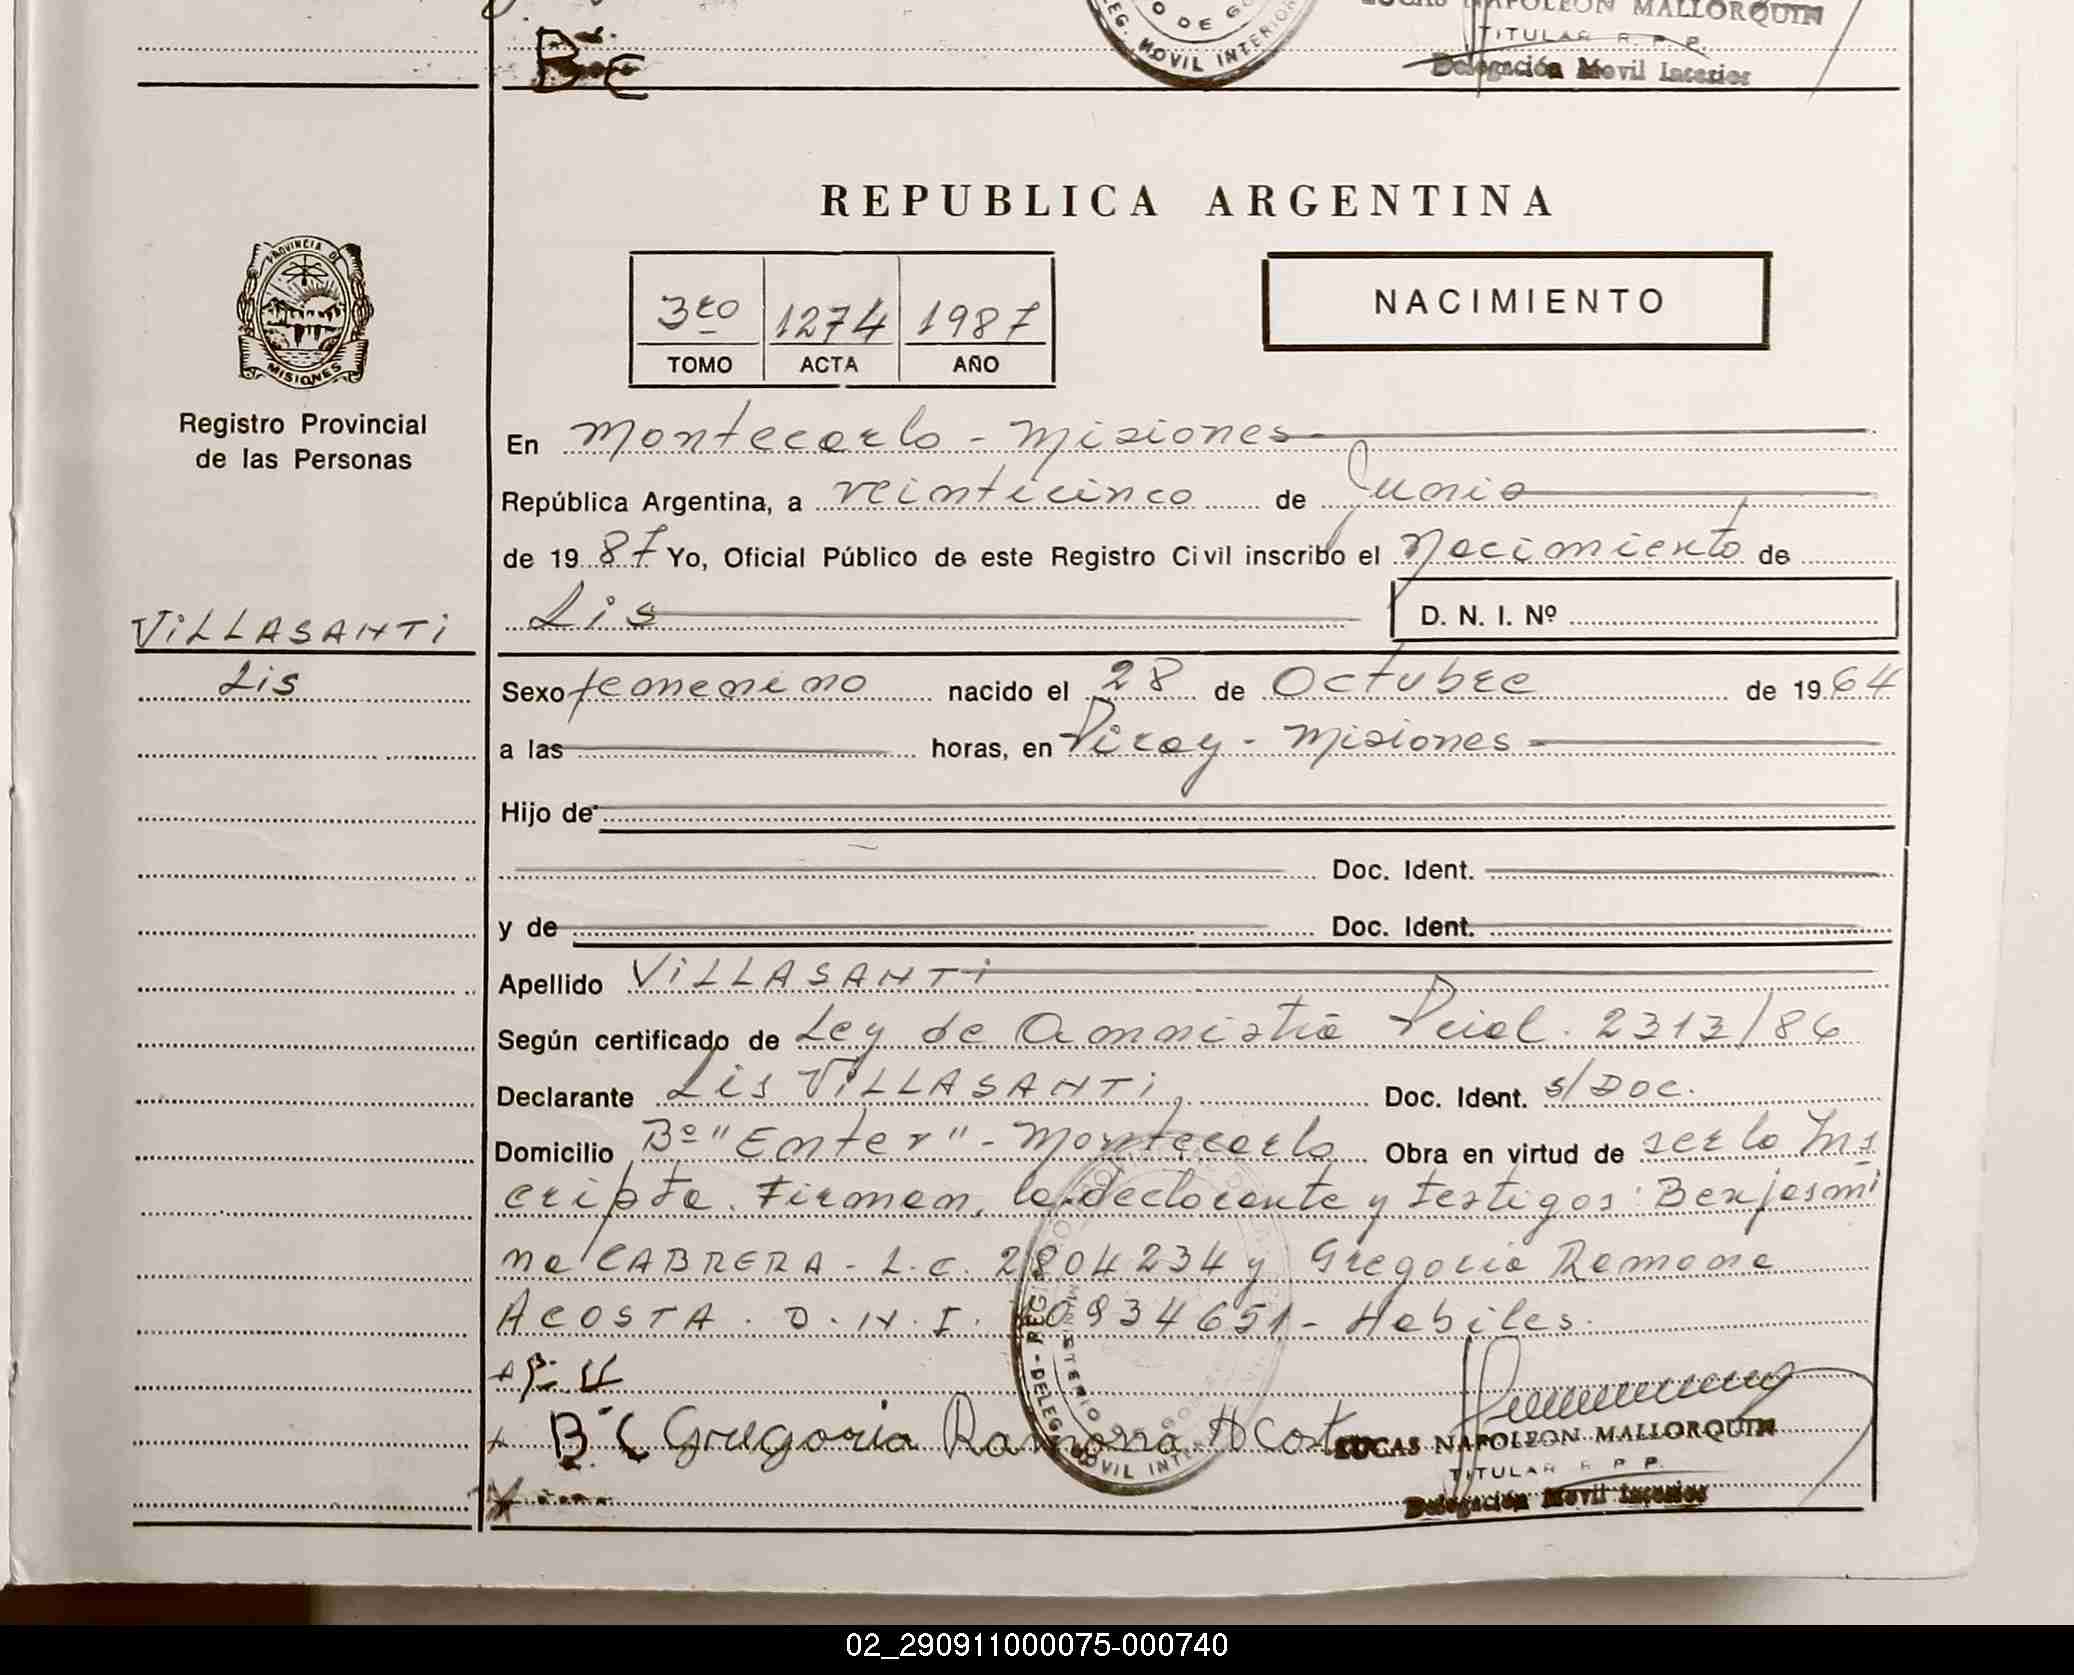 LUCAS NAPOLEON MALLORQUIN
TITULAR R. P. P.
B C
MOVIL INTERIOR
Delegación Movil Interior
REPUBLICA ARGENTINA
PROVINCIA DE
MISIONES
Registro Provincial
de las Personas
3ro 1274 1987
TOMO ACTA AÑO
NACIMIENTO
En Montecarlo - Misiones
República Argentina, a veinticinco de Junio
de 19 87 Yo, Oficial Público de este Registro Civil inscribo el Nacimiento de
Lis D. N. I. Nº
VILLASANTI
Lis
Sexo femenino nacido el 28 de Octubre de 19 64
a las horas, en Piray - Misiones
Hijo de
Doc. Ident.
y de Doc. Ident.
Apellido VILLASANTI
Según certificado de Ley de Amnistia Pcial. 2313/86
Declarante Lis VILLASANTI Doc. Ident. s/Doc.
Domicilio Bº "Enter" - Montecarlo Obra en virtud de ser la Ins
cripta. Firman, la declarante y testigos: Benjami
na CABRERA - L.C. 2804234 y Gregoria Ramona
ACOSTA . D.N.I. 0934651 - Habiles.
B C Gregoria Ramona Acosta
LUCAS NAPOLEON MALLORQUIN
TITULAR R P P.
Delegación Movil Interior
02_290911000075-000740